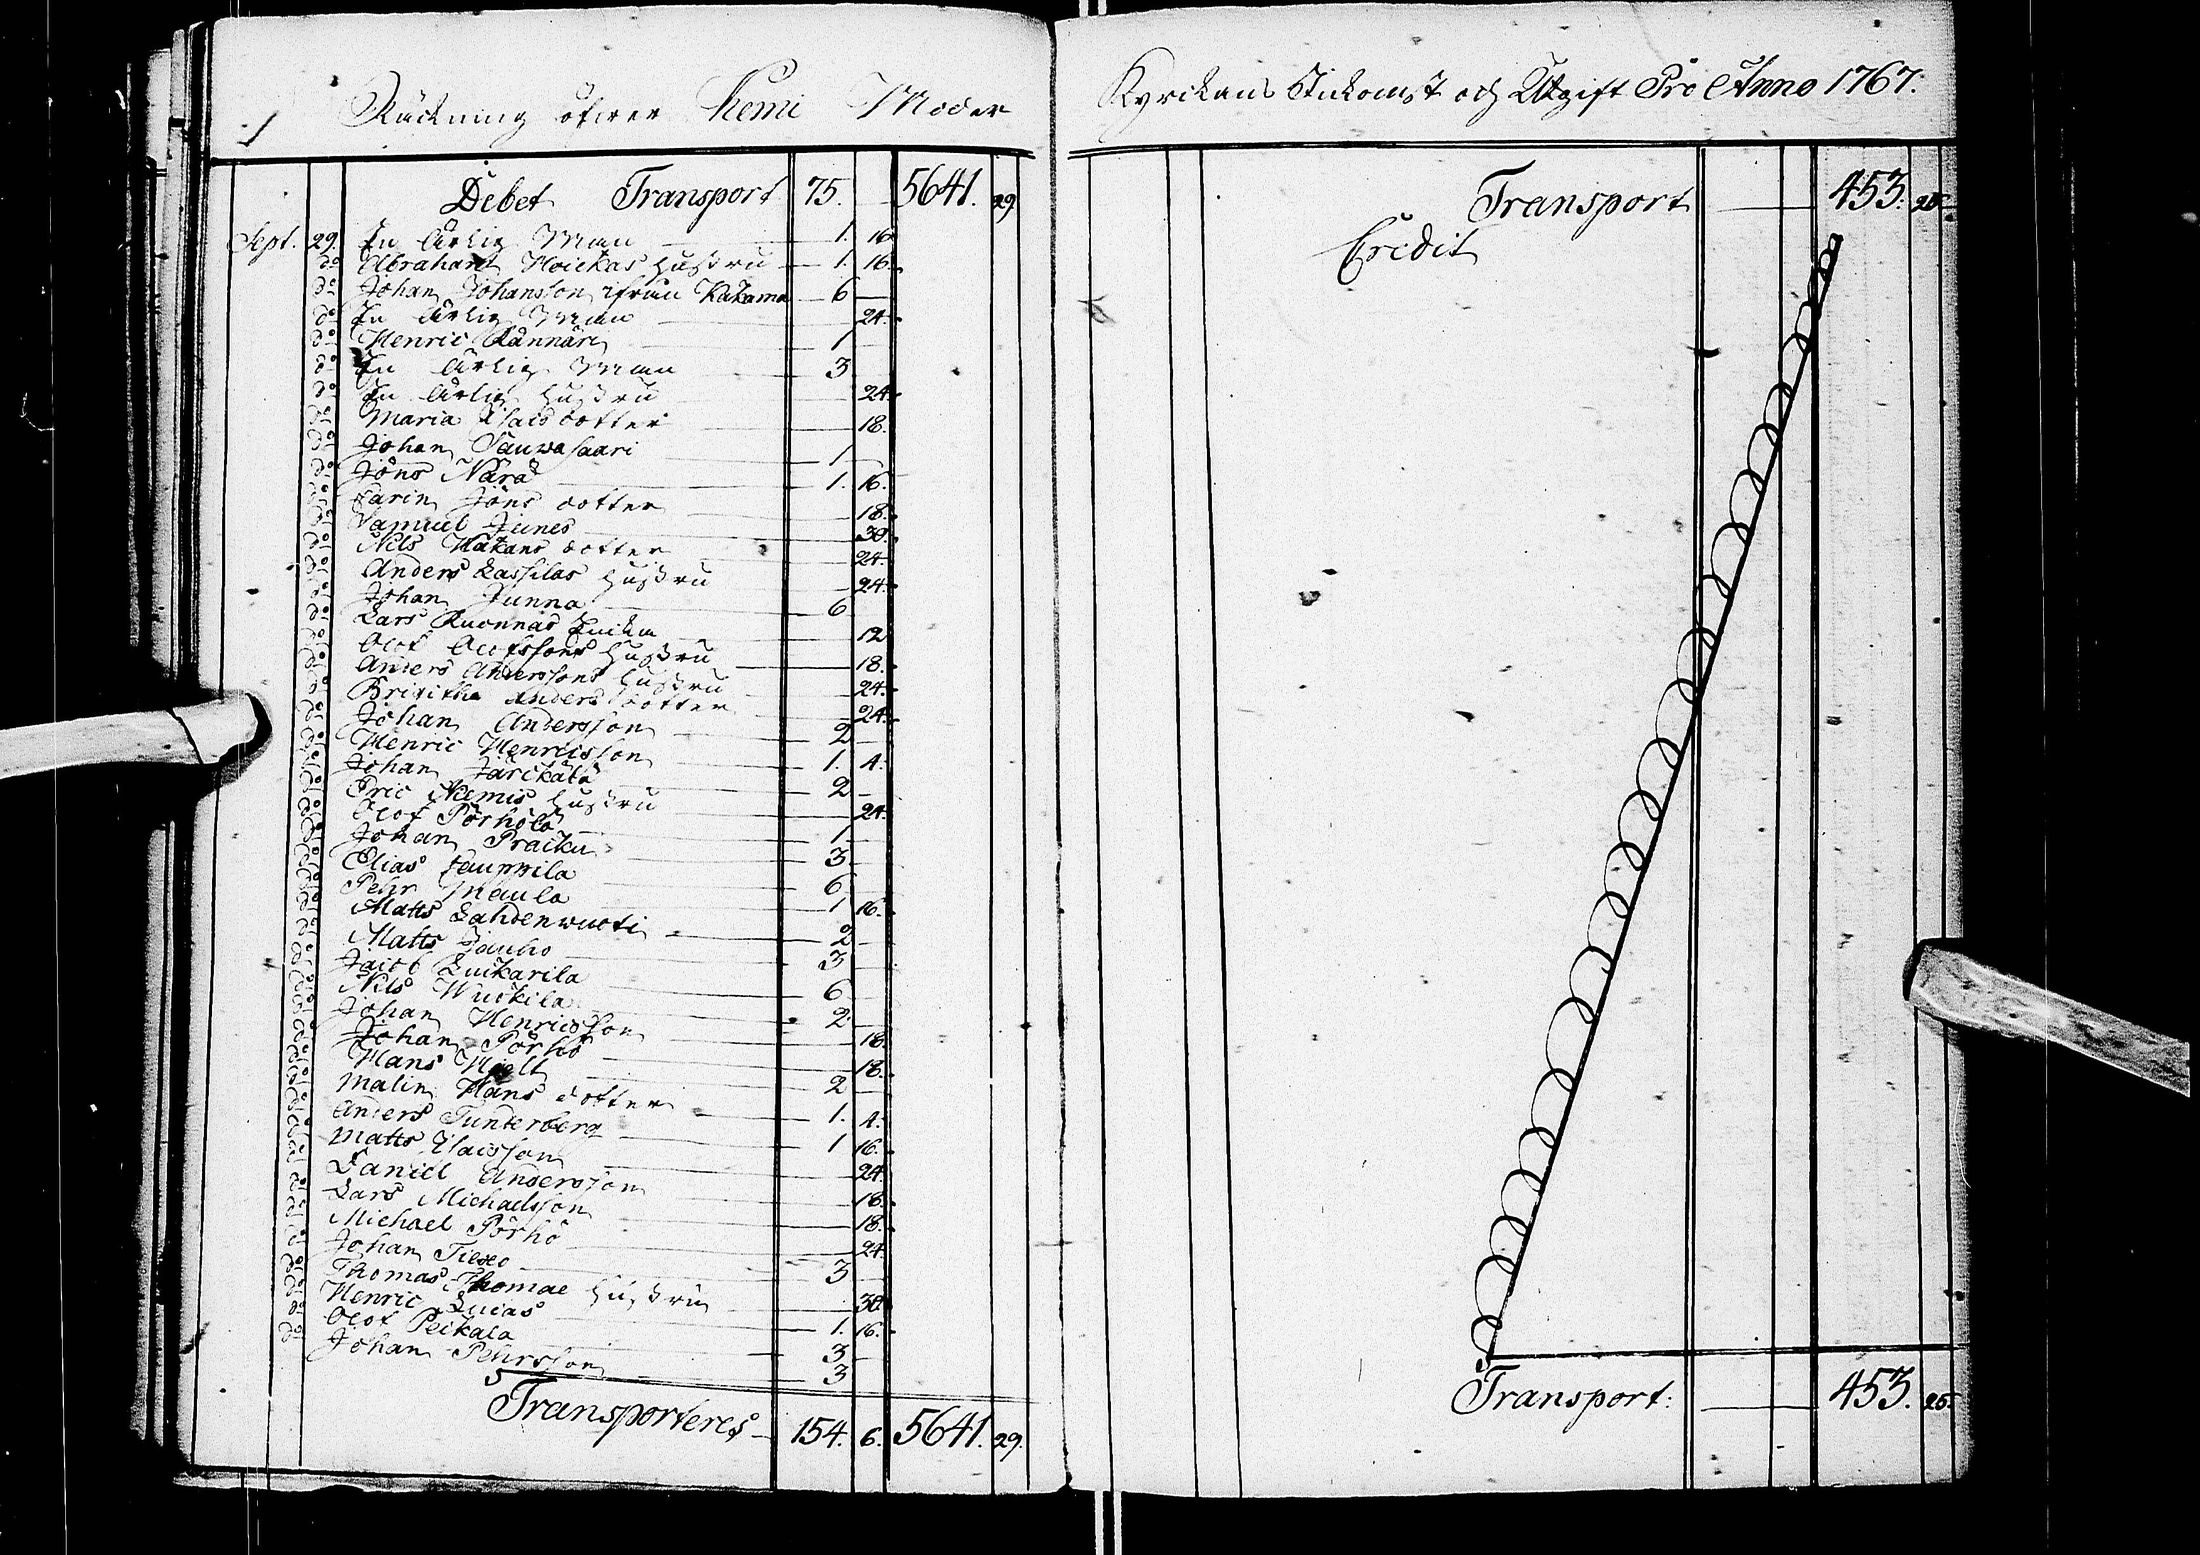 Räckning öfwer Kemi Moder
Kyrckans Inkomst och Utgift Pro Anno 1767.
Debet Transport 75. 5641. 29.
Sept. 29. En Ärlig Man 1. 16
do Abraham Hoickas Hustru 1. 16.
do Johan Johansson ifrån Kakama 6
do En Ärlig Man 24.
do Henric Kännäri 1
do En Ärlig Man 3
do En Ärlig Hustru 24.
do Maria Isacs dotter 18.
do Johan Sauwasaari 1
do Jöns Närä 1. 16.
do Carin Jöns dotter 18.
do Samuel Junes 30.
do Nils Håkans dotter 24.
do Anders Lassilas Hustru 24.
do Johan Junna 6
do Lars Kuonnas Enka 12
do Olof Olofssons Hustru 18.
do Anders Anderssons Hustru 24.
do Brigitha Anders dotter 24.
do Johan Andersson 2
do Henric Henricsson 1. 4.
do Johan Järickälä 2
do Eric Niemis Hustru 24.
do Olof Pörhölä 1
do Johan Praiku 3
do Elias Lauwila 6
do Pehr Maula 1 16.
do Matts Lahdenwuoti 2
do Matts Jauho 3
do Jacob Luikarila 6
do Nils Wuokila 2
do Johan Henricsson 18.
do Johan Pörhö 18.
do Hans 2
do Malin Hans dotter 1. 4.
do Anders Tunderberg 1 16.
do Matts Isacsson 24.
do Daniel Andersson 18.
do Lars Michaelsson 18.
do Michael Pörhö 24.
do Johan 3
do Thomas Thomae Hustru 30.
do Henric Lucas 1. 16.
do Olof Peikala 3
do Johan Pehrsson 3
Transporteres 154. 6. 5641. 29.
Transport 453. 25.
Credit
Transport: 453. 25.